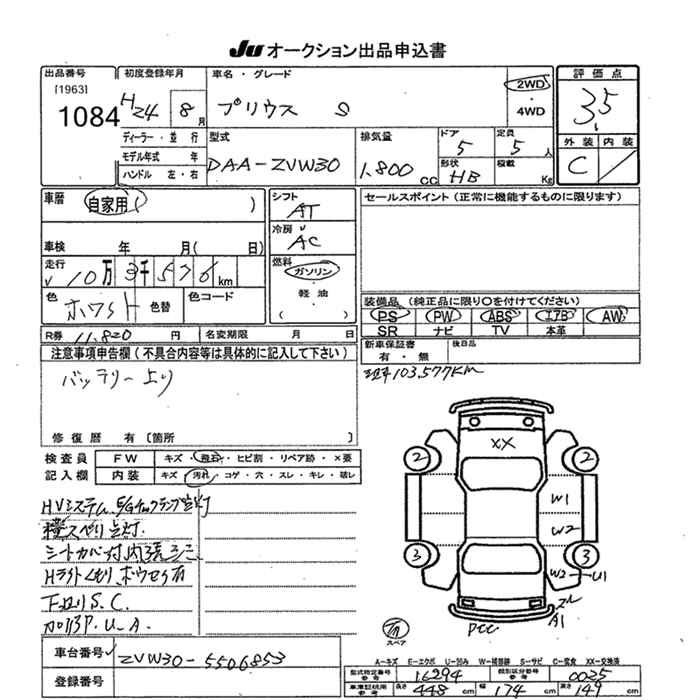 JU オークション出品申込書
出品番号
[1963]
1084
初度登録年月
H24 8月
ディーラー・並行
モデル年式 年
ハンドル 左・右
車名・グレード
プリウス S
2WD
・
4WD
評価点
3.5
外装 内装
C /
型式
DAA-ZVW30
排気量
1.800 CC
ドア
5
定員
5人
形状
HB
積載
Kg
車歴 自家用( )
車検 年 月( 日)
走行
√ 10万3千576km
色
ホワイト 色替
色コード
R券 11.820 円
名変期限 月 日
シフト
AT
冷房
AC
燃料
ガソリン
・
軽油
( )
セールスポイント(正常に機能するものに限ります)
装備品(純正品に限り○を付けてください)
PS PW ABS エアB AW
SR ナビ TV 本革
新車保証書
有・無
後日品
103,577KM
注意事項申告欄(不具合内容等は具体的に記入して下さい)
バッテリー上り
修復歴 有〔箇所 〕
検査員
記入欄
FW キズ・飛石・ヒビ割・リペア跡・×要
内装 キズ・汚れ・コゲ・穴・スレ・キレ・破レ
HVシステム.E/Gチェックランプ点灯
横スベリ点灯
シートカバー付内張シミ
Hライトくもり ホウセキ有
下回りS.C.
加修P.U.A.
XX
2 2
W1
W2
3 3
W2 U1
A1
PCC
スペア
車台番号 ZVW30-5506853
登録番号
A-キズ E-エクボ U-凹み W-補修跡 S-サビ C-腐食 XX-交換済
型式指定番号 参考 16294
類別区分番号 参考 0025
車庫証明用 参考 長さ 448 cm 幅 174 cm 高さ 149 cm